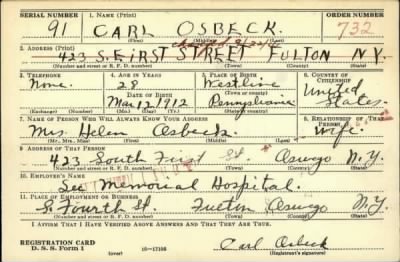 SERIAL NUMBER 1. NAME (Print) ORDER NUMBER
91 CARL OSBECK. 732
(First) (Middle) (Last)
2. ADDRESS (Print)
423 S. FIRST STREET FULTON N.Y.
(Number and street or R. F. D. number) (Town) (County) (State)
3. TELEPHONE 4. AGE IN YEARS 5. PLACE OF BIRTH 6. COUNTRY OF CITIZENSHIP
None. 28 Westline United
DATE OF BIRTH (Town or county)
Mar 1912 Pennsylvania States.
(Exchange) (Number) (Mo.) (Day) (Yr.) (State or country)
7. NAME OF PERSON WHO WILL ALWAYS KNOW YOUR ADDRESS 8. RELATIONSHIP OF THAT PERSON
Mrs. Helen Osbeck wife.
(Mr., Mrs., Miss) (First) (Middle) (Last)
9. ADDRESS OF THAT PERSON
423 South First St. Oswego N.Y.
(Number and street or R. F. D. number) (Town) (County) (State)
10. EMPLOYER'S NAME
Lee Memorial Hospital.
11. PLACE OF EMPLOYMENT OR BUSINESS
S. Fourth St. Fulton Oswego N.Y.
(Number and street or R. F. D. number) (Town) (County) (State)
I AFFIRM THAT I HAVE VERIFIED ABOVE ANSWERS AND THAT THEY ARE TRUE.
REGISTRATION CARD
D. S. S. Form 1 (over) 16—17105 Carl Osbeck
(Registrant's signature)